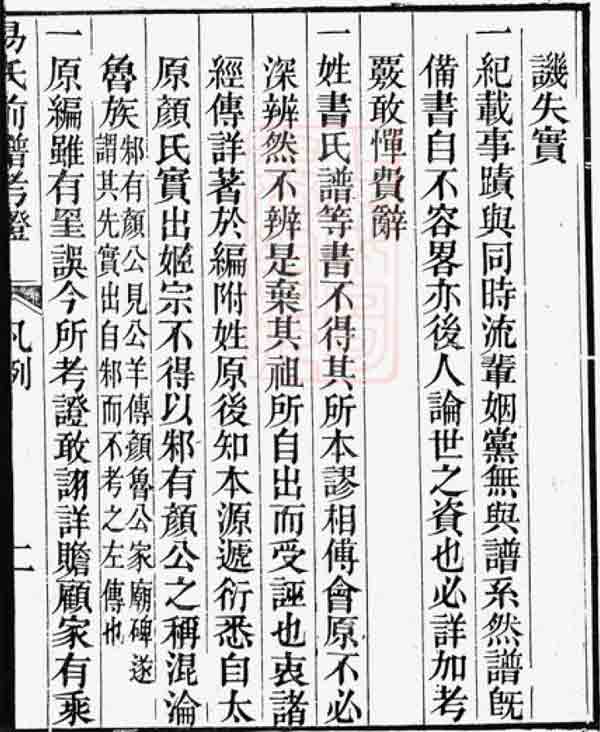 譏失實
一紀載事蹟與同時流輩姻黨無與譜系然譜旣
備書自不容畧亦後人論世之資也必詳加考
覈敢憚費辭
一姓書氏譜等書不得其所本謬相傅會原不必
深辨然不辨是棄其祖所自出而受誣也衷諸
經傳詳著於編附姓原後知本源遞衍悉自太
原顏氏實出姬宗不得以邾有顏公之稱混淪
魯族邾有顏公見公羊傳顏魯公家廟碑遂
謂其先實出自邾而不考之左傳也
一原編雖有罣誤今所考證敢詡詳贍顧家有乘
昜氏前譜考證
凡例
二